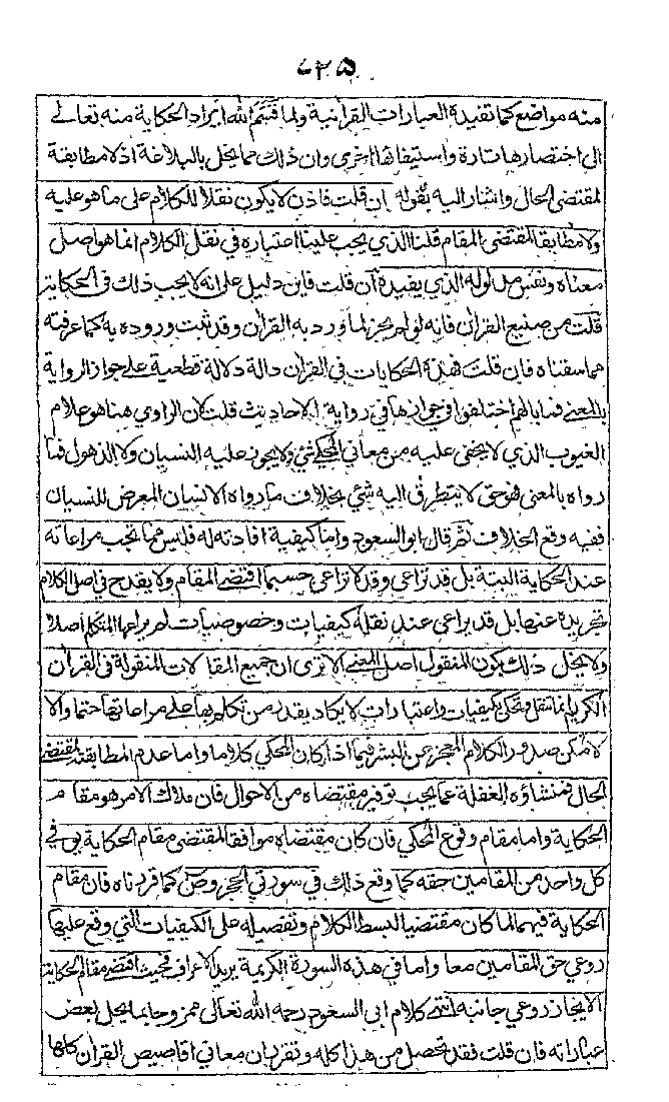 ٧٣٥
منه مواضع كما تفيدة العبارات القرانية ولما قسم الله ايراد الحكاية منه تعالى
الى اختصارها تارة واستيفائها اخرى وان ذلك مما يخل بالبلاغة اذ لا مطابقة
لمقتضى الحال واشار اليه بقوله ان قلت فاذن لا يكون نقلا للكلام على ما هو عليه
ولا مطابقا لمقتضى المقام قلنا الذي يجب علينا اعتباره في نقل الكلام انما هو اصل
معناه ونفس مدلوله الذي يفيدة ان قلت فاين دليل على انه لا يجب ذلك في الحكاية
قلت من صنيع القران فانه لو لم يجز لما ورد به القران وقد ثبت وروده به كما عرفته
مما سقناه فان قلت فهذه الحكايات في القران دالة دلالة قطعية على جواز الرواية
بالمعنى فما بالهم اختلفوا في جوازها في رواية الاحاديث قلت كان الراوي هنا هو علام
الغيوب الذي لا يخفى عليه من معاني المحكي شي ولا يجوز عليه النسيان ولا الذهول فما
رواه بالمعنى فهو حق لا يتطرق اليه شي بخلاف ما رواه الانسان المعرض للنسيان
ففيه وقع الخلاف ثم قال ابو السعود واما كيفية افادته له فليس مما يجب مراعاته
عند الحكاية البتة بل قد تراعى وقد لا تراعى حسبما اقتضى المقام ولا يقدح في اصل الكلام
تجريدة عنها بل قد يراعى عند نقله كيفيات وخصوصيات لم يراعها المتكلم اصلا
ولا يخل ذلك بكون المنقول اصل المعنى الا ترى ان جميع المقالات المنقولة في القران
الكريم انما تنقل وتحكى بكيفيات واعتبارات لا يكاد يقدر من تكلم بها على مراعاتها حتما والا
لامكن صدور الكلام المعجز عن البشر فيما اذا كان المحكي كلاما واما عدم المطابقة لمقتضى
الحال فمنشاؤه الغفلة عما يجب توفير مقتضاه من الاحوال فان ملاك الامر هو مقام
الحكاية واما مقام وقوع المحكي فان كان مقتضاه موافقا لمقتضى مقام الحكاية يوفي
كل واحد من المقامين حقه كما وقع ذلك في سورتي الحجر وص كما قررناه فان مقام
الحكاية فيهما لما كان مقتضيا لبسط الكلام وتفصيله على الكيفيات التي وقع عليها
روعي حق المقامين معا واما في هذه السورة الكريمة يريد الاعراف فحيث اقتضى مقام الحكاية
الايجاز روعي جانبه انتهى كلام ابي السعود رحمه الله تعالى ممزوجا بما يحل بعض
عباراته فان قلت فقد تحصل من هذا كله وتقرر بان معاني اقاصيص القران كلها